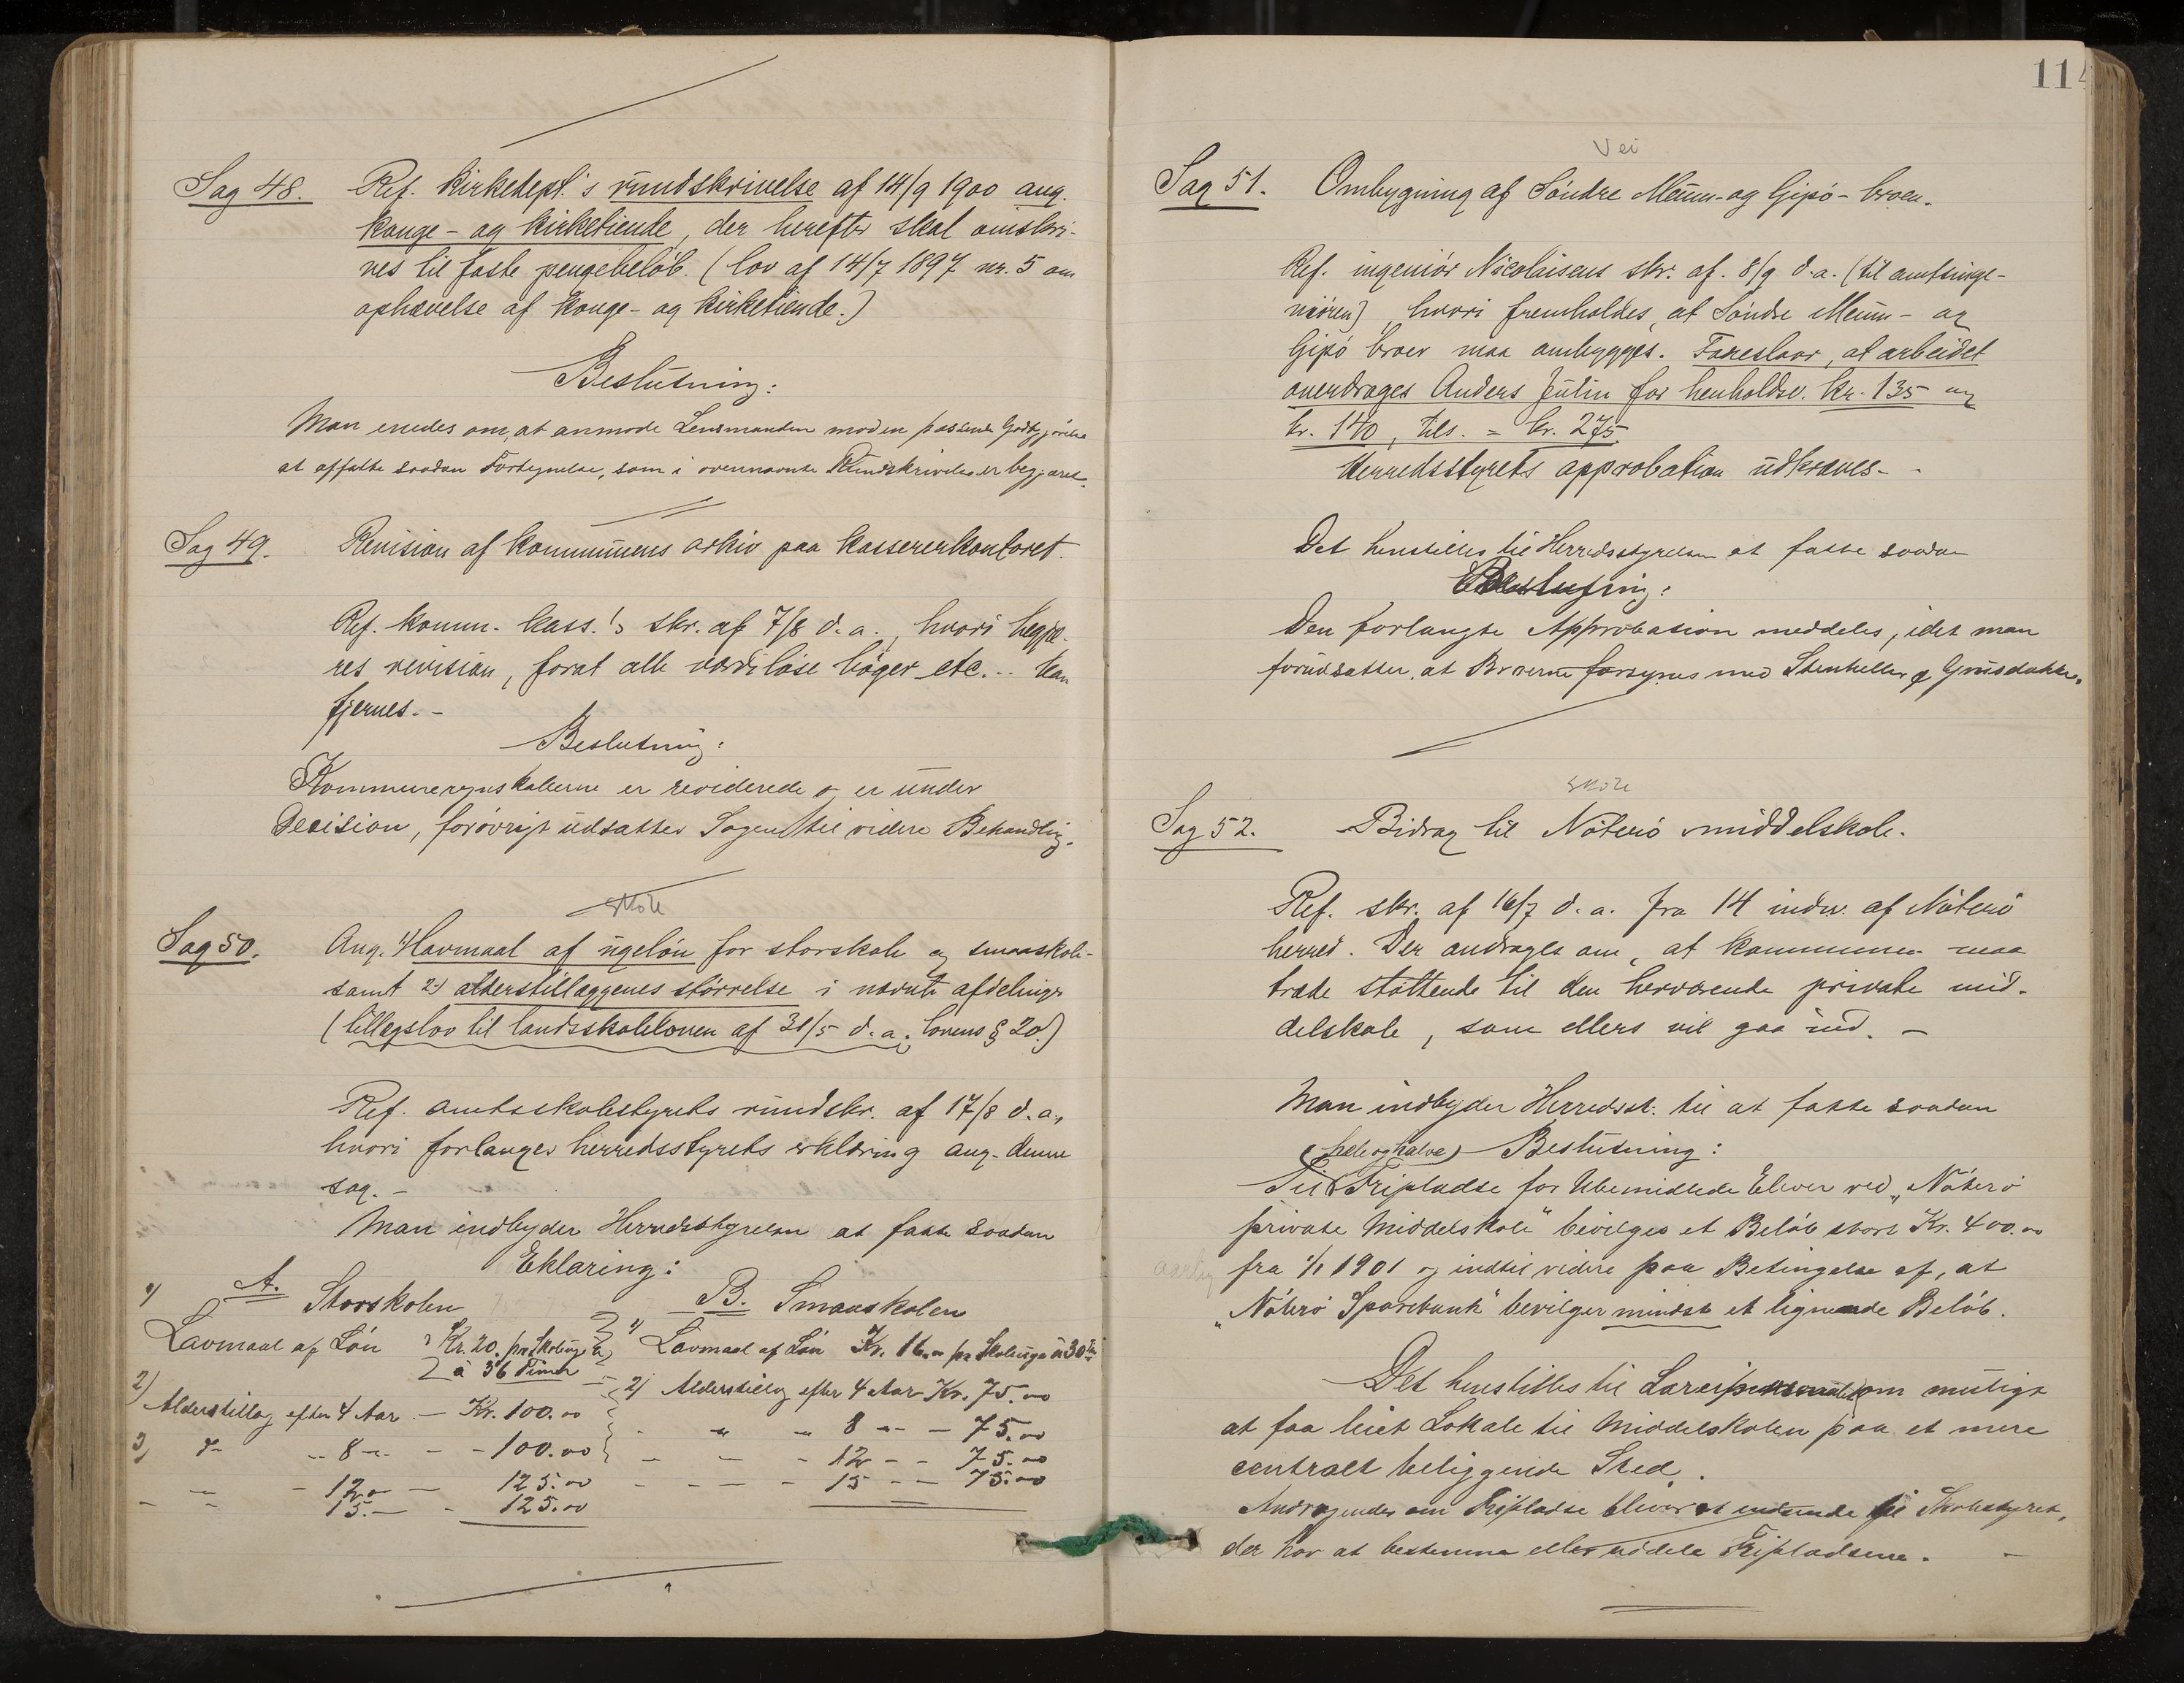 Sag 48. Ref. Kirkedept.'s rundskrivelse af 14/9 1900 ang.
konge- og kirketiende, der herefter skal omskri-
ves til faste pengebeløb. (lov af 14/7 1897 nr. 5 om
ophævelse af konge- og kirketiende.)
Beslutning:
Man enedes om, at anmode Lensmanden mod en passende Godtgjørelse
at affatte saadan Fortegnelse, som i ovennævnte Rundskrivelse er begjæret.
Sag 49. Revision af kommunens arkiv paa kassererkontoret.
Ref. komm. kass.'s skr. af 7/8 d. a., hvori begjæ-
res revision, forat alle værdiløse bøger etc... kan
fjernes. -
Beslutning:
Kommuneregnskaberne er reviderede og er under
Decision, forøvrigt udsattes Sagen til videre Behandling.
skole
Sag 50. Ang. 1) Lavmaal af ugeløn for storskole og smaaskole-
samt 2) alderstillæggenes størrelse i nævnte afdelinger
(tillægslov til landsskoleloven af 31/5 d. a., lovens § 20.)
Ref. amtsskolestyrets rundskr. af 17/8 d. a.,
hvori forlanges herredsstyrets erklæring ang. denne
sag. -
Man indbyder Herredsstyrelsen at fatte saadan
Eklæring:
1) A. Storskolen
B. Smaaskolen
Lavmaal af Løn Kr. 20. pr. Skoleuge
à 36 Timer
1) Lavmaal af Løn Kr. 16.00 pr Skoleuge à 30 Tim
2) Alderstillæg efter 4 Aar - Kr. 100.00
2) Alderstillæg efter 4 Aar Kr. 75.00
3) " 8 " - - 100.00
" " 8 " - 75.00
- - - 12 " - 125.00
- - - 12 - - 75.00
- - 15. - - 125.00
- - - 15 - - 75.00
114
Vei
Sag 51. Ombygning af Søndre Meum- og Gipø-broen.
Ref. ingeniør Nicolaisens skr. af 8/9 d. a. (til amtsinge-
niøren), hvori fremholdes, at Søndre Meum- og
Gipø broer maa ombygges. Foreslaar, at arbeidet
overdrages Anders Jutin for henholdsv. kr. 135 og
kr. 140, tils. = kr. 275.
Herredsstyrets approbation udkræves. -
Det henstilles til Herredsstyrelsen at fatte saadan
Beslutning:
Den forlangte Approbasion meddeles, idet man
forudsætter, at Broerne forsynes med Stenheller & Grusdække.
skole
Sag 52. Bidrag til Nøterø middelskole.
Ref. skr. af 16/7 d. a. fra 14 indv. af Nøterø
herred. Der andrages om, at kommunen maa
træde støttende til den herværende private mid-
delskole, som ellers vil gaa ind. -
Man indbyder Herredsst. til at fatte saadan
(hele og halve) Beslutning:
Til Fripladse for Ubemidlede Elever ved "Nøterø
private Middelskole" bevilges et Beløb stort Kr. 400.00
aarlig fra 1/1 1901 og indtil videre paa Betingelse af, at
"Nøterø Sparebank" bevilger mindst et lignende Beløb.
Det henstilles til Lærerpersonalet om muligt
at faa leiet Lokale til Middelskolen paa et mere
centralt beliggende Sted.
Andragender om Fripladse bliver at indsende til Skolestyret,
der har at bestemme eller uddele Fripladsene. -